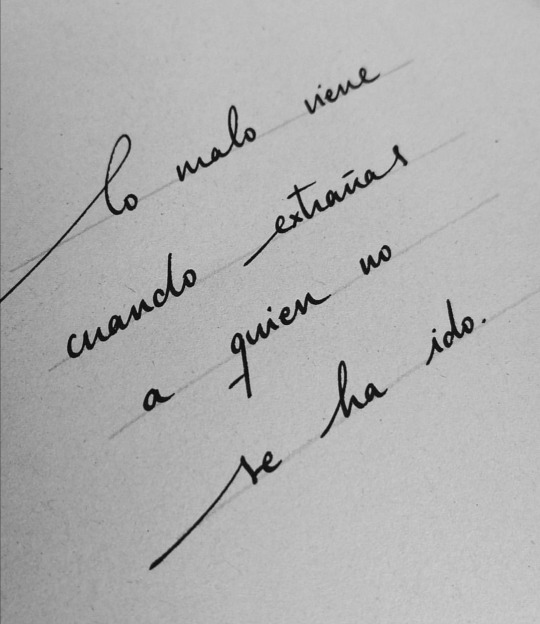 lo malo viene
cuando extrañas
a quien no
se ha ido.